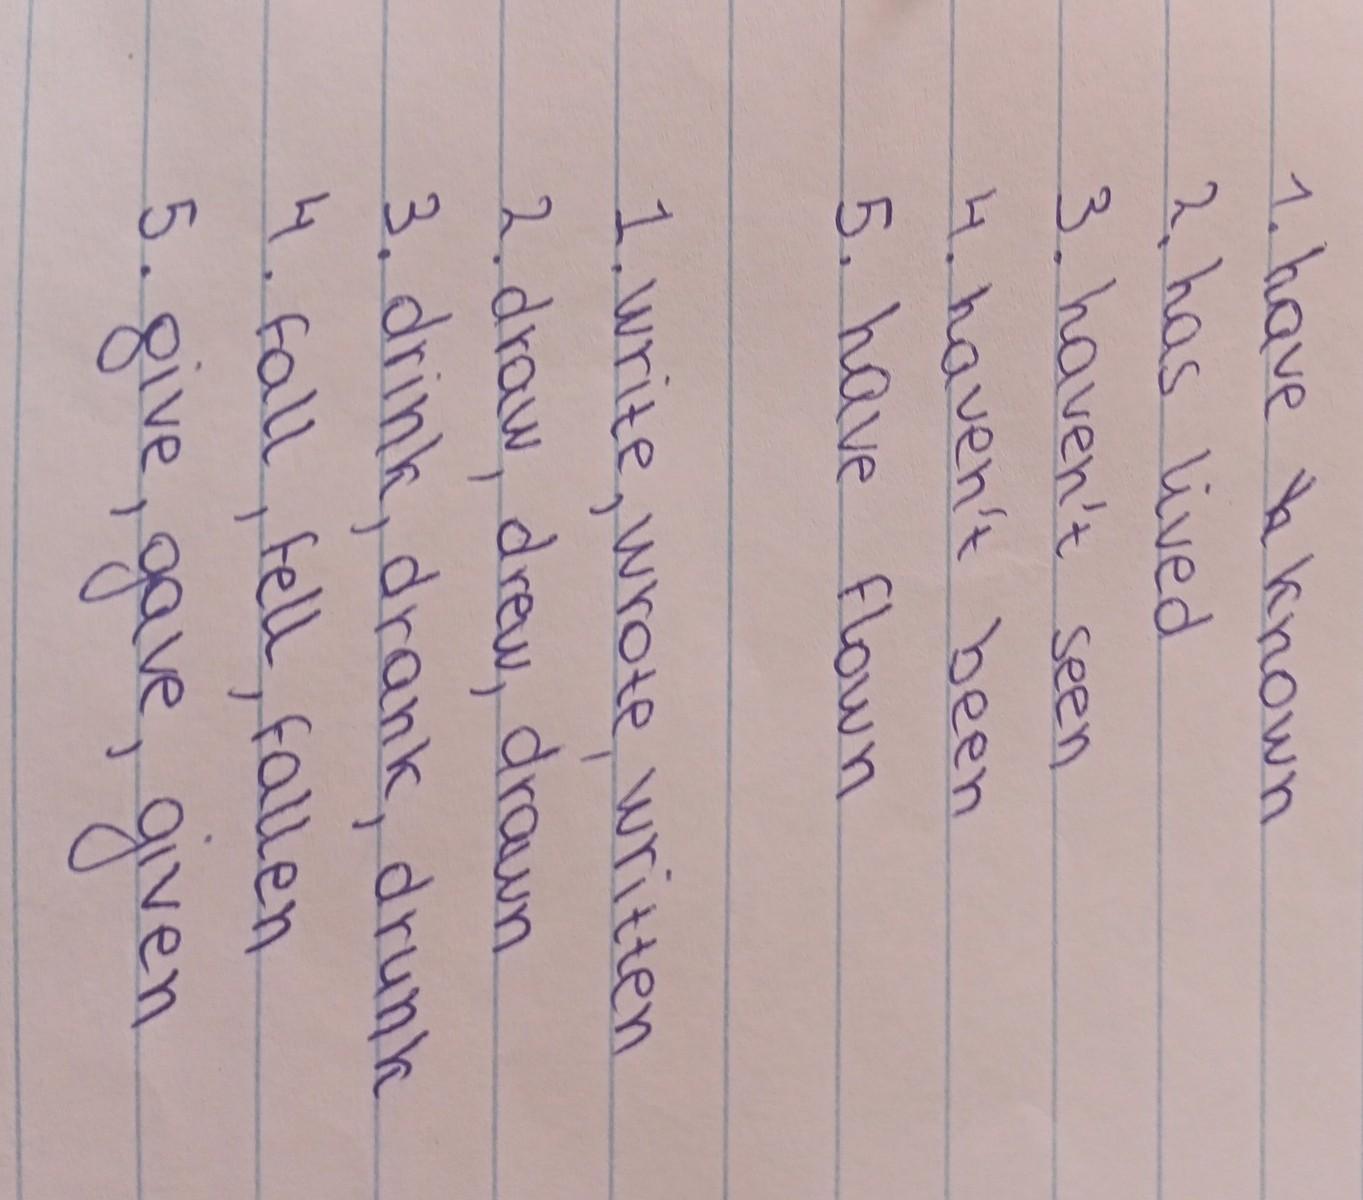 1. have known
2. has lived
3. haven't seen
4. haven't been
5. have flown
1. write, wrote, written
2. draw, drew, drawn
3. drink, drank, drunk
4. fall, fell, fallen
5. give, gave, given